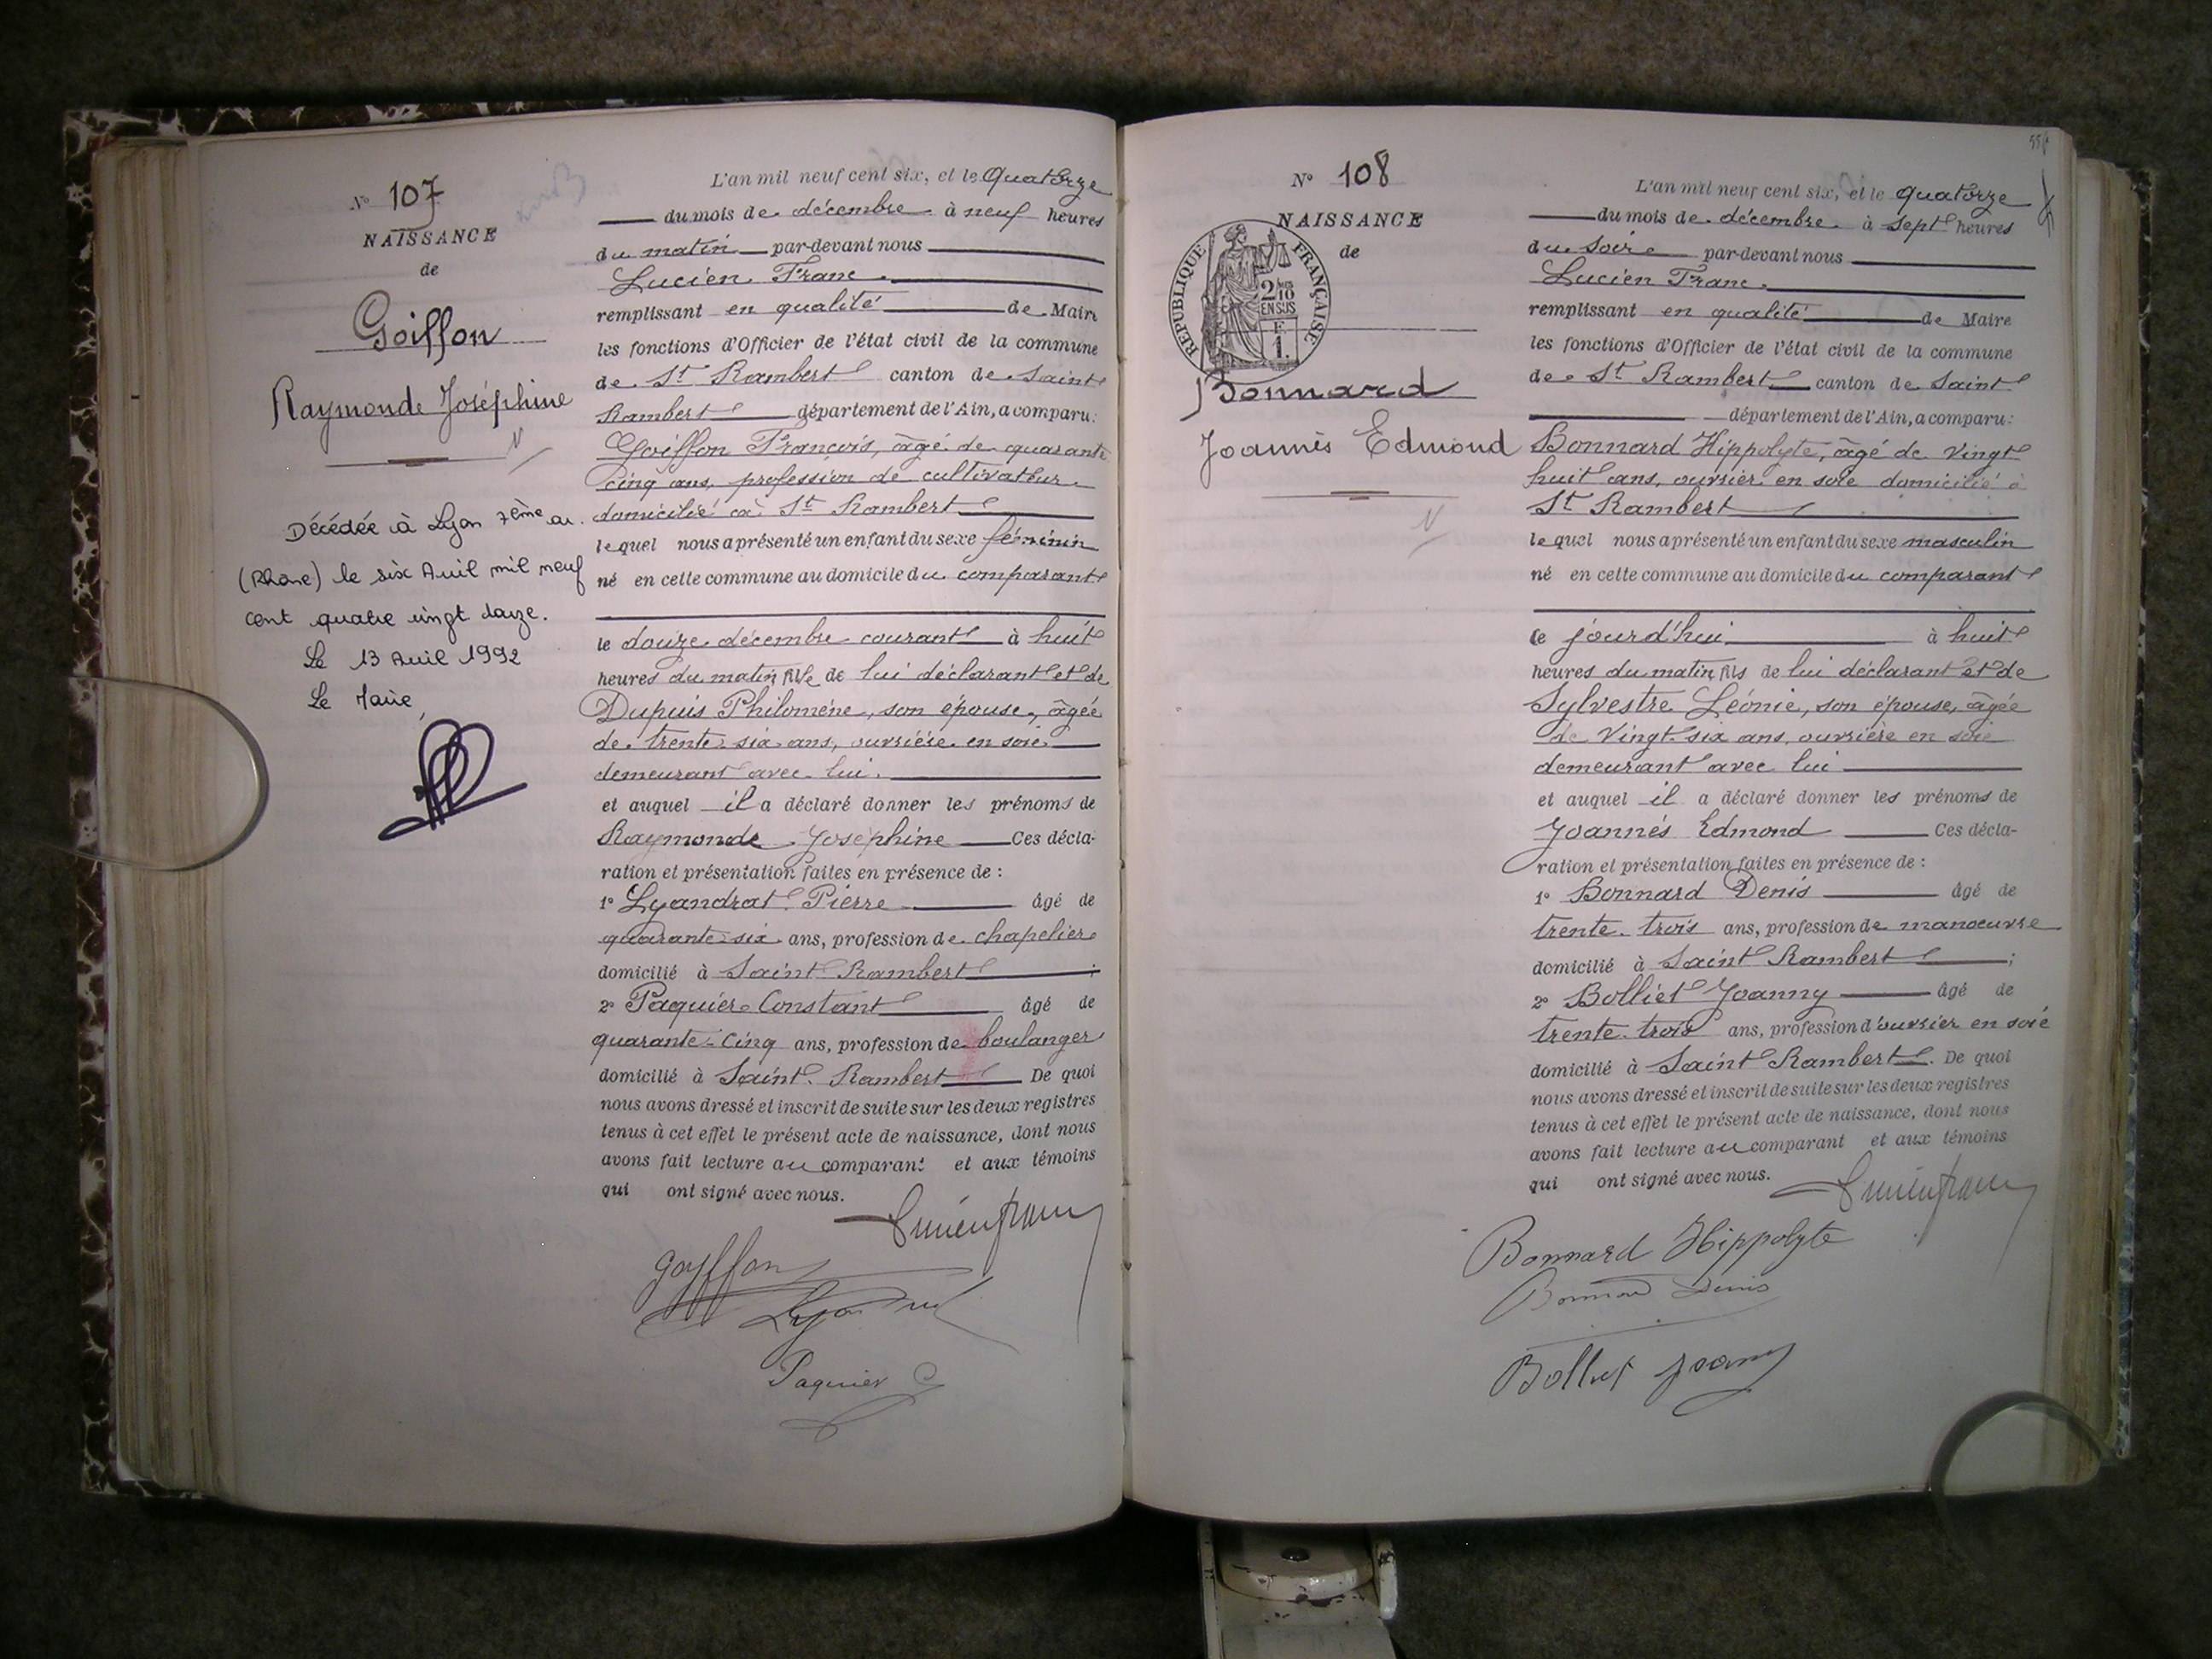 N° 107
NAISSANCE
de
Goiffon
Raymonde Joséphine
Décédée à Lyon 7ème ar.
(Rhône) le six Avril mil neuf
cent quatre vingt douze.
Le 13 Avril 1992
Le Maire,
L'an mil neuf cent six, et le Quatorze
du mois de décembre à neuf heures
du matin par-devant nous
Lucien Franc.
remplissant en qualité de Maire
les fonctions d'Officier de l'état civil de la commune
de St Rambert canton de Saint
Rambert département de l'Ain, a comparu:
Goiffon François, âgé de quarante
cinq ans, profession de cultivateur
domicilié à St Rambert
lequel nous a présenté un enfant du sexe féminin
né en cette commune au domicile du comparant
le douze décembre courant à huit
heures du matin, fille de lui déclarant et de
Dupuis Philomène, son épouse, âgée
de trente six ans, ouvrière en soie
demeurant avec lui.
et auquel il a déclaré donner les prénoms de
Raymonde Joséphine Ces décla-
ration et présentation faites en présence de :
1° Lyandrat Pierre âgé de
quarante-six ans, profession de chapelier
domicilié à Saint Rambert ;
2° Paquier Constant âgé de
quarante-cinq ans, profession de boulanger
domicilié à Saint Rambert De quoi
nous avons dressé et inscrit de suite sur les deux registres
tenus à cet effet le présent acte de naissance, dont nous
avons fait lecture au comparant et aux témoins
qui ont signé avec nous.
Lucien Franc
Goyffon
Lyandrat
Paquier C
N° 108
NAISSANCE
de
RÉPUBLIQUE FRANÇAISE
2/10
EN SUS
F.
1.
Bonnard
Joannès Edmond
L'an mil neuf cent six, et le quatorze
du mois de décembre à sept heures
du soir par-devant nous
Lucien Franc.
remplissant en qualité de Maire
les fonctions d'Officier de l'état civil de la commune
de St Rambert canton de Saint
département de l'Ain, a comparu:
Bonnard Hippolyte, âgé de vingt
huit ans, ouvrier en soie domicilié à
St Rambert
lequel nous a présenté un enfant du sexe masculin
né en cette commune au domicile du comparant
ce jourd'hui à huit
heures du matin, fils de lui déclarant et de
Sylvestre Léonie, son épouse, âgée
de vingt-six ans, ouvrière en soie
demeurant avec lui
et auquel il a déclaré donner les prénoms de
Joannès Edmond Ces décla-
ration et présentation faites en présence de :
1° Bonnard Denis âgé de
trente-trois ans, profession de manoeuvre
domicilié à Saint Rambert ;
2° Bolliet Joanny âgé de
trente-trois ans, profession d'ouvrier en soie
domicilié à Saint Rambert. De quoi
nous avons dressé et inscrit de suite sur les deux registres
tenus à cet effet le présent acte de naissance, dont nous
avons fait lecture au comparant et aux témoins
qui ont signé avec nous.
Lucien Franc
Bonnard Hippolyte
Bonnard Denis
Bolliet Joany